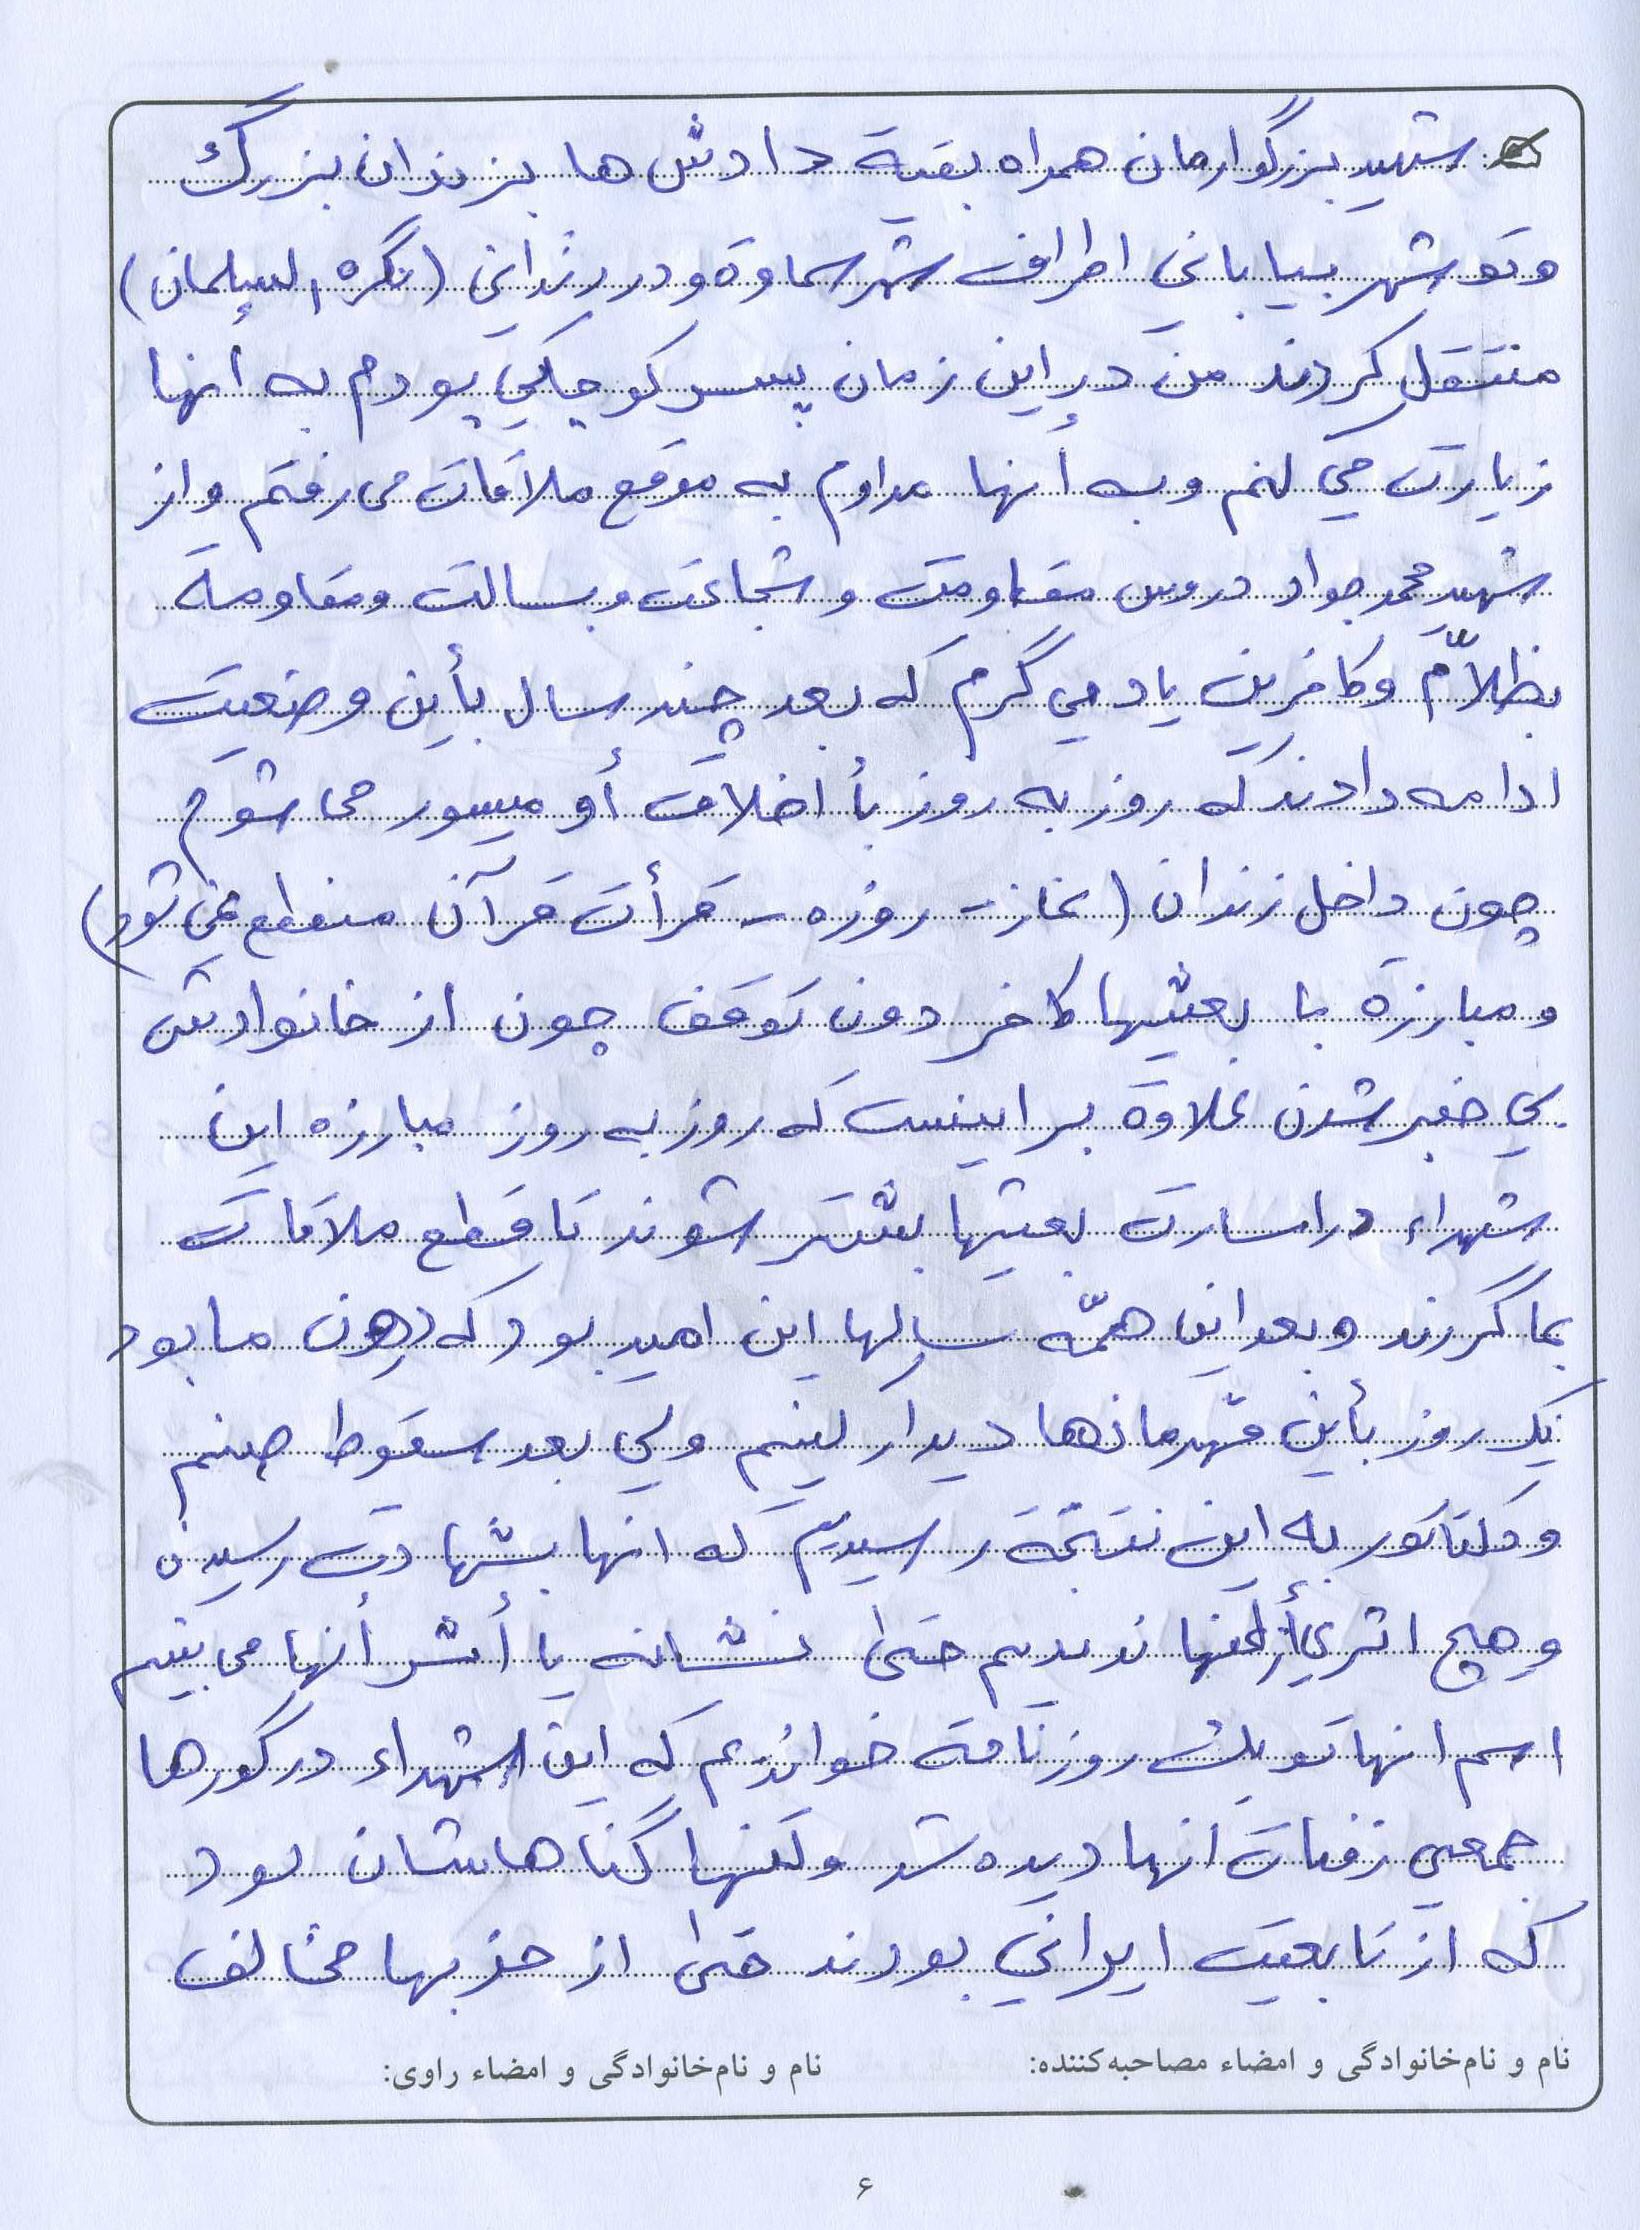 شهید بزرگوارمان همراه بقیة دادش ها بزندان بزرگ
وتو شهر بیابانی اطراف شهر سماوة ودر زندانی (نگره السلمان)
منتقل کردند من در این زمان پسر کوچکی بودم به أنها
زیارت می کنم وبه أنها مداوم به موقع ملاقات می رفتم واز
شهید محمد جواد دروس مقاومت وشجاعت وبسالت ومقاومة
بظلاّم وکافرین یاد می گرم که بعد چند سال بأین وضعیت
ادامه دادند که روز به روز بأ اخلاق أو میسور می شوم
چون داخل زندان (نماز - روزه - قرأت قرآن منقطع نمی شود)
ومبارزة با بعثیها کافر دون توقف چون از خانوادش
بی خبر شدن علاوة بر اینست که روز به روز مبارزه این
شهداء در اسارت بعثیها بشتر شوند تا قطع ملاقات
بما گردند وبعد این همّه سالها این امید بود که ذهن ما بود
یک روز بأین قهرمانها دیدار کینم ولی بعد سقوط صنم
ودکتاتور به این نتیجة رسیدیم که انها بشهادت رسیدن
وهیچ اثری أز أنها ندیدیم حتی نشانه یا أثر أنها می بینیم
اسم انها تو یک روزنامة خواندیم که این شهداء در گورها
جمعی رفات انها دیده شد ولتنها گناهاشان بود
که از تابعیت ایرانی بودند حتی از حزبها مخالف
نام و نام‌خانوادگی و امضاء مصاحبه‌کننده: نام و نام‌خانوادگی و امضاء راوی:
۶